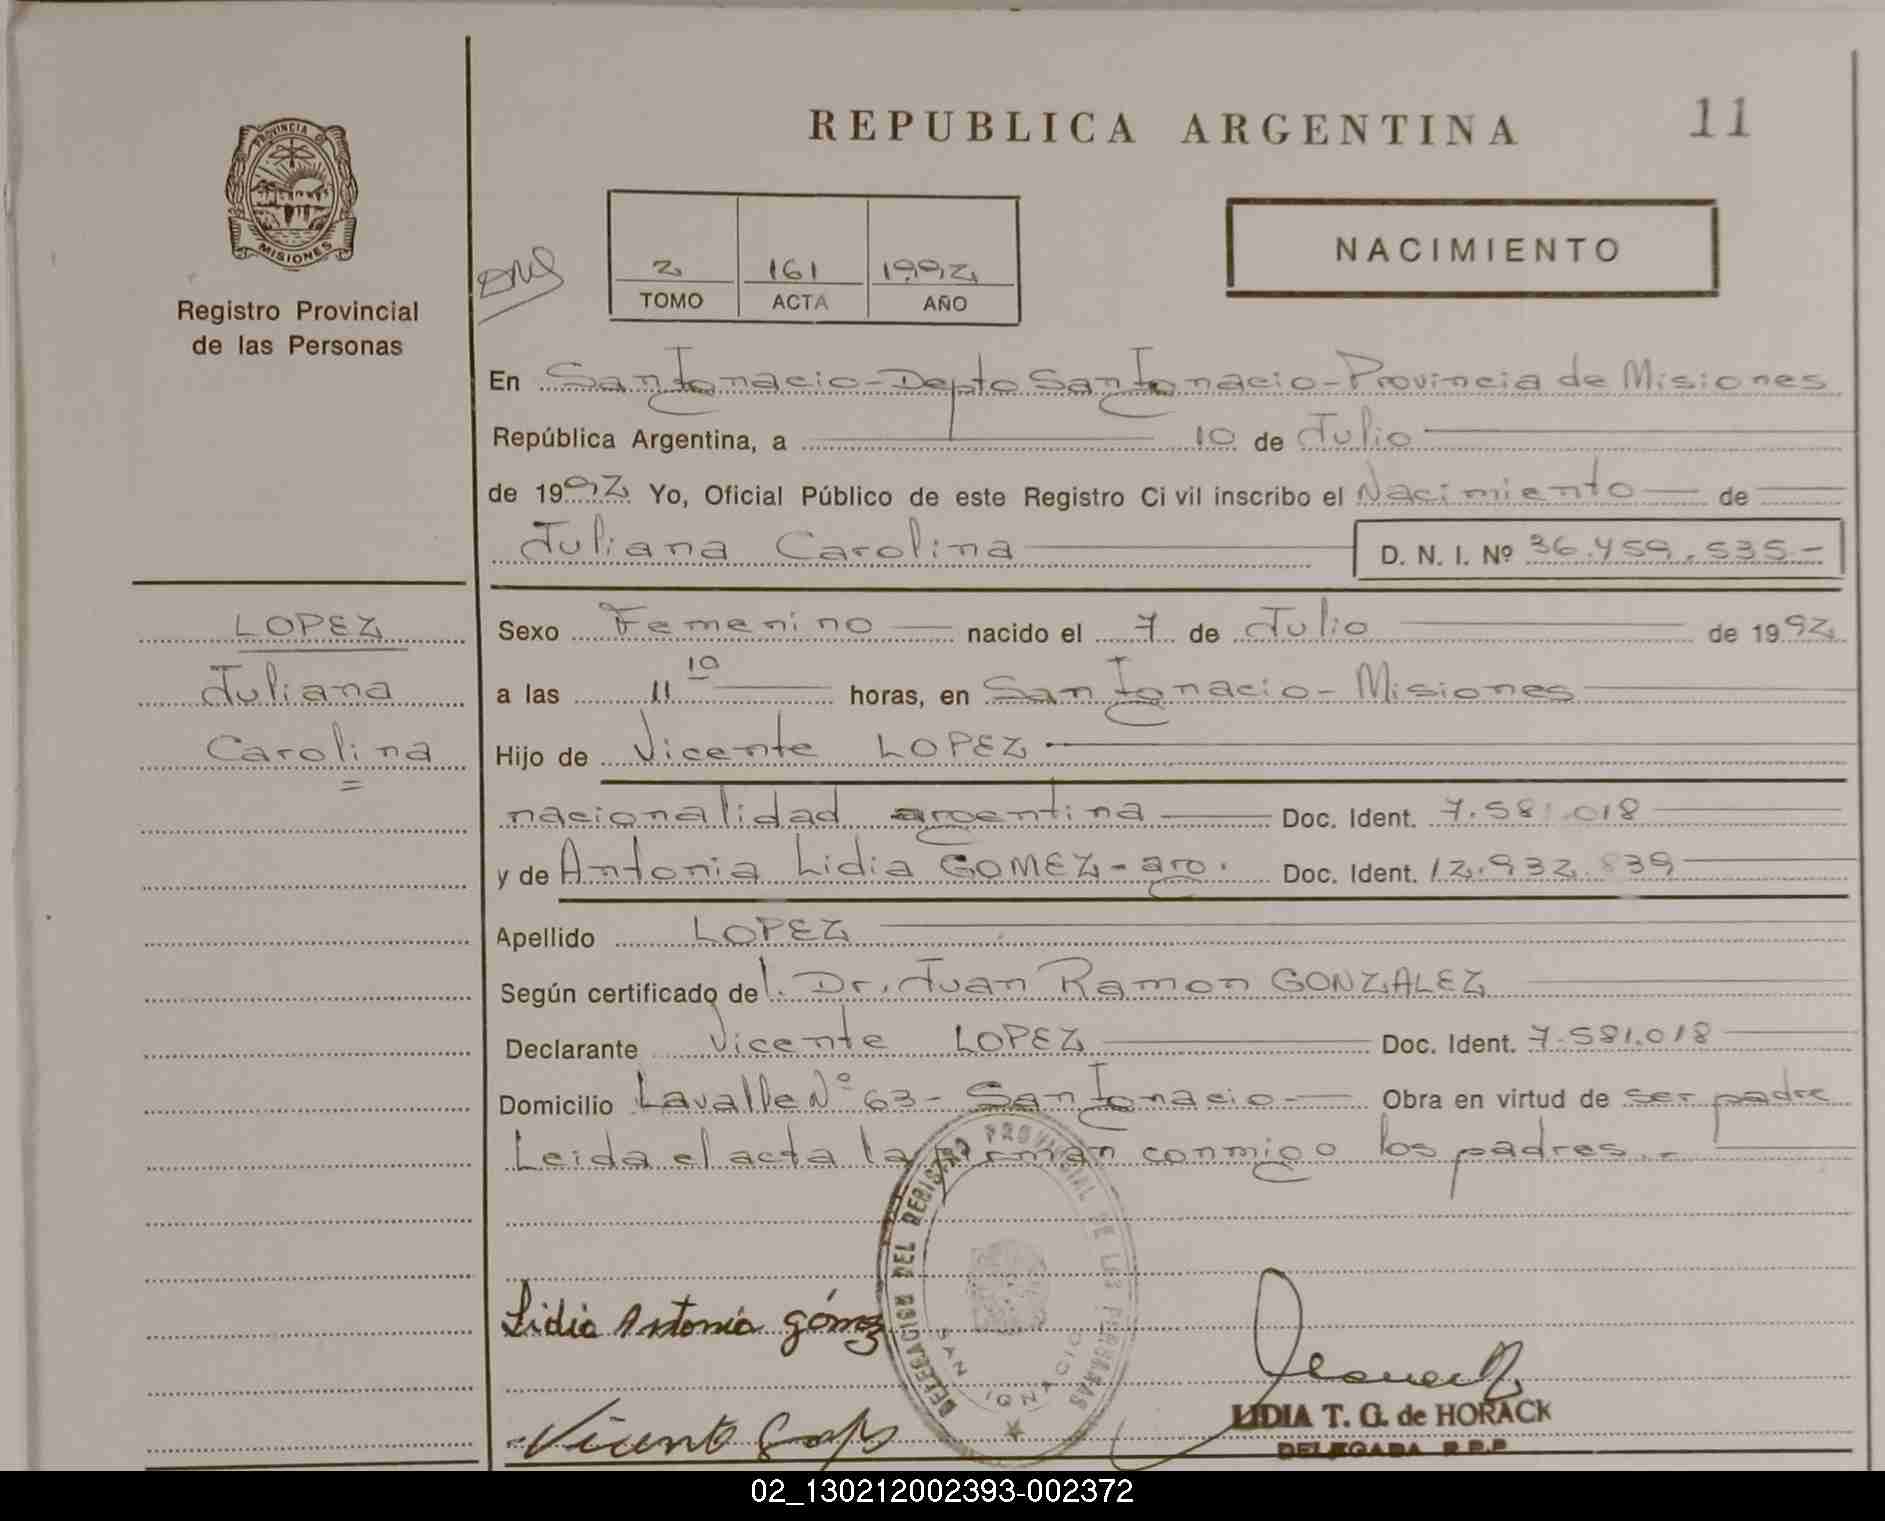 REPUBLICA ARGENTINA
11
PROVINCIA DE
MISIONES
Registro Provincial
de las Personas
2 161 1992
TOMO ACTA AÑO
NACIMIENTO
En San Ignacio - Depto San Ignacio - Provincia de Misiones
República Argentina, a 10 de Julio
de 1992 Yo, Oficial Público de este Registro Ci vil inscribo el Nacimiento de
Juliana Carolina D. N. I. Nº 36.459.535.-
LOPEZ
Juliana
Carolina
Sexo Femenino nacido el 7 de Julio de 1992
a las 11 10 horas, en San Ignacio - Misiones
Hijo de Vicente LOPEZ
nacionalidad argentina Doc. Ident. 7.581.018
y de Antonia Lidia GOMEZ - arg. Doc. Ident. 12.932.839
Apellido LOPEZ
Según certificado del. Dr. Juan Ramon GONZALEZ
Declarante Vicente LOPEZ Doc. Ident. 7.581.018
Domicilio Lavalle Nº 63 - San Ignacio - Obra en virtud de ser padre
Leida el acta la firman conmigo los padres.-
DELEGACION DEL REGISTRO PROVINCIAL DE LAS PERSONAS
SAN IGNACIO
Lidia Antonia Gómez
Vicente
LIDIA T. G. de HORACK
DELEGADA R.P.P
02_130212002393-002372